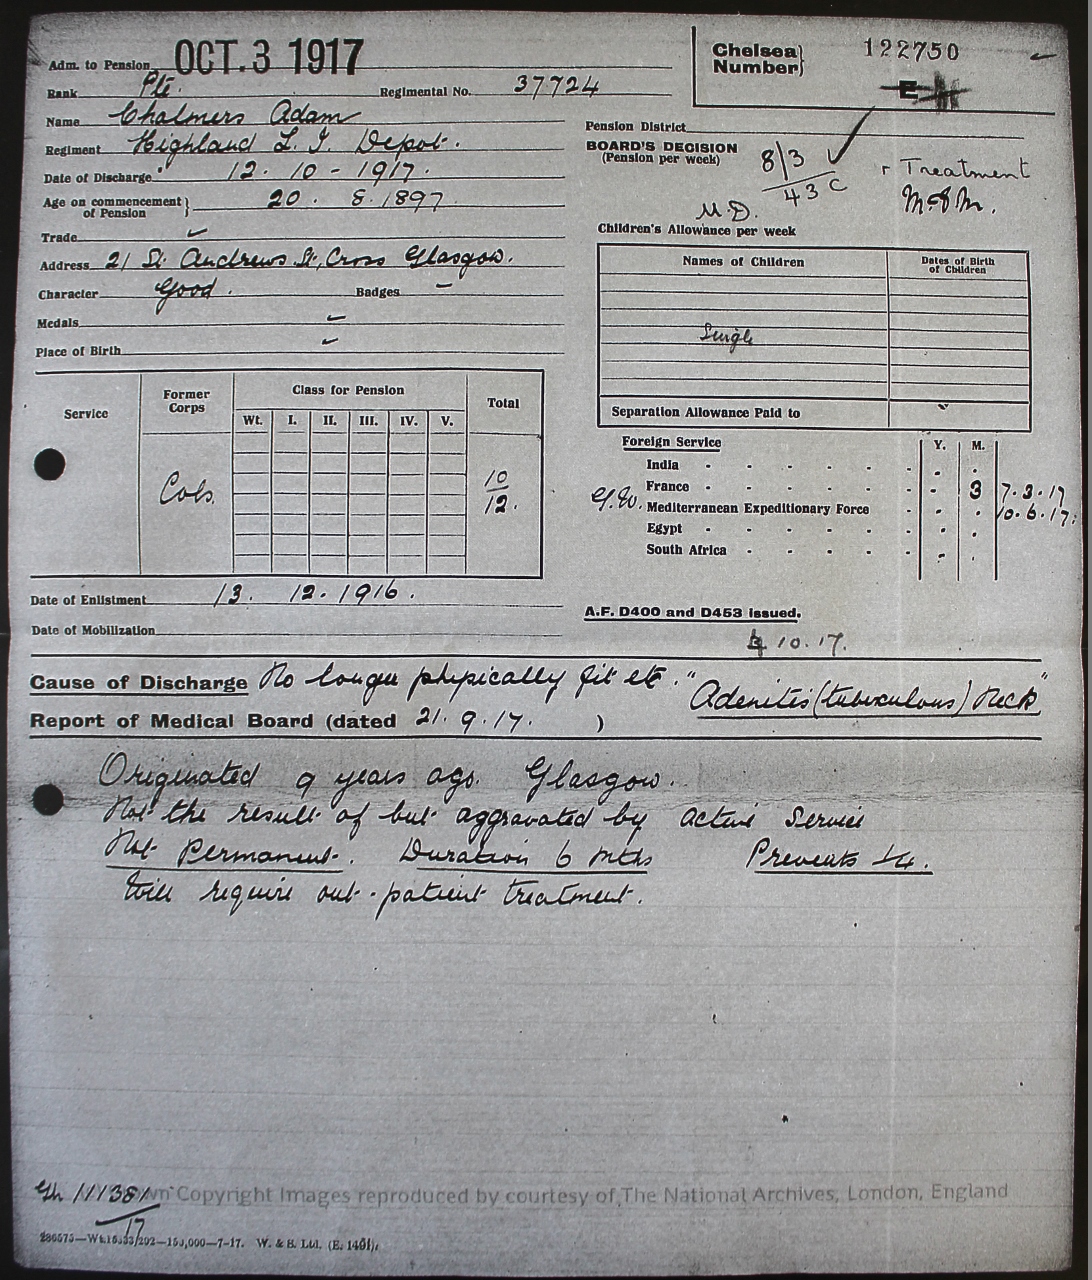 Adm. to Pension OCT. 3 1917
Rank Pte. Regimental No. 37724
Name Chalmers Adam
Regiment Highland L. I. Depot.
Date of Discharge 12. 10 - 1917.
Age on commencement of Pension } 20. 8. 1897
Trade
Address 21 St. Andrews St., Cross Glasgow.
Character Good. Badges -
Medals
Place of Birth
Service Former Corps Class for Pension Total
Wt. I. II. III. IV. V.
Cols. 10/12.
Date of Enlistment 13. 12. 1916.
Date of Mobilization
Chelsea Number} 122750
E
Pension District
BOARD'S DECISION
(Pension per week) 8/3 Treatment
43 C
M.D.
Children's Allowance per week
Names of Children Dates of Birth of Children
Single
Separation Allowance Paid to
Foreign Service Y. M.
India
France - 3 7.3.17
G.W. Mediterranean Expeditionary Force 10.6.17.
Egypt
South Africa
A.F. D400 and D453 issued.
10.17.
Cause of Discharge No longer physically fit etc. "Adenitis (tuberculous) Neck"
Report of Medical Board (dated 21. 9. 17. )
Originated 9 years ago. Glasgow.
Not the result of but aggravated by active service
Not Permanent. Duration 6 mths Prevents 1/4.
Will require out-patient treatment.
111381/17
Crown Copyright Images reproduced by courtesy of The National Archives, London, England
W. & S. Ltd. (E. 1491).